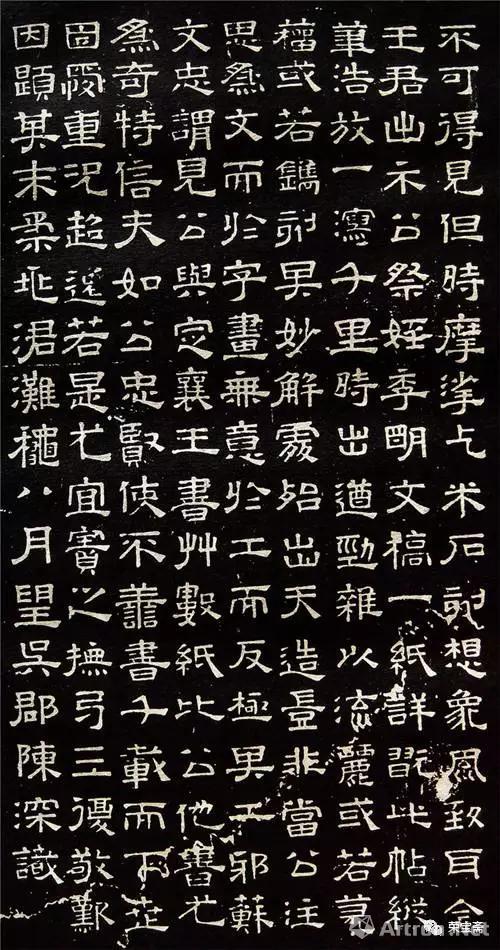 不可得見但時摩挲乞米石刻想象風致耳今
王君出示公祭姪季明文稿一紙詳翫此帖縱
筆浩放一瀉千里時出遒勁雜以流麗或若篆
籀或若鐫刻其妙解處殆出天造豈非當公注
思為文而於字畫無意於工而反極其工邪蘇
文忠謂見公與定襄王書艸數紙比公他書尤
為奇特信夫如公忠賢使不善書千載而下世
固愛重況超逸若是尤宜寶之撫弓三復敬歎
因題其末柔兆涒灘穐八月望吳郡陳深識
Artron.Net
荣宝斋